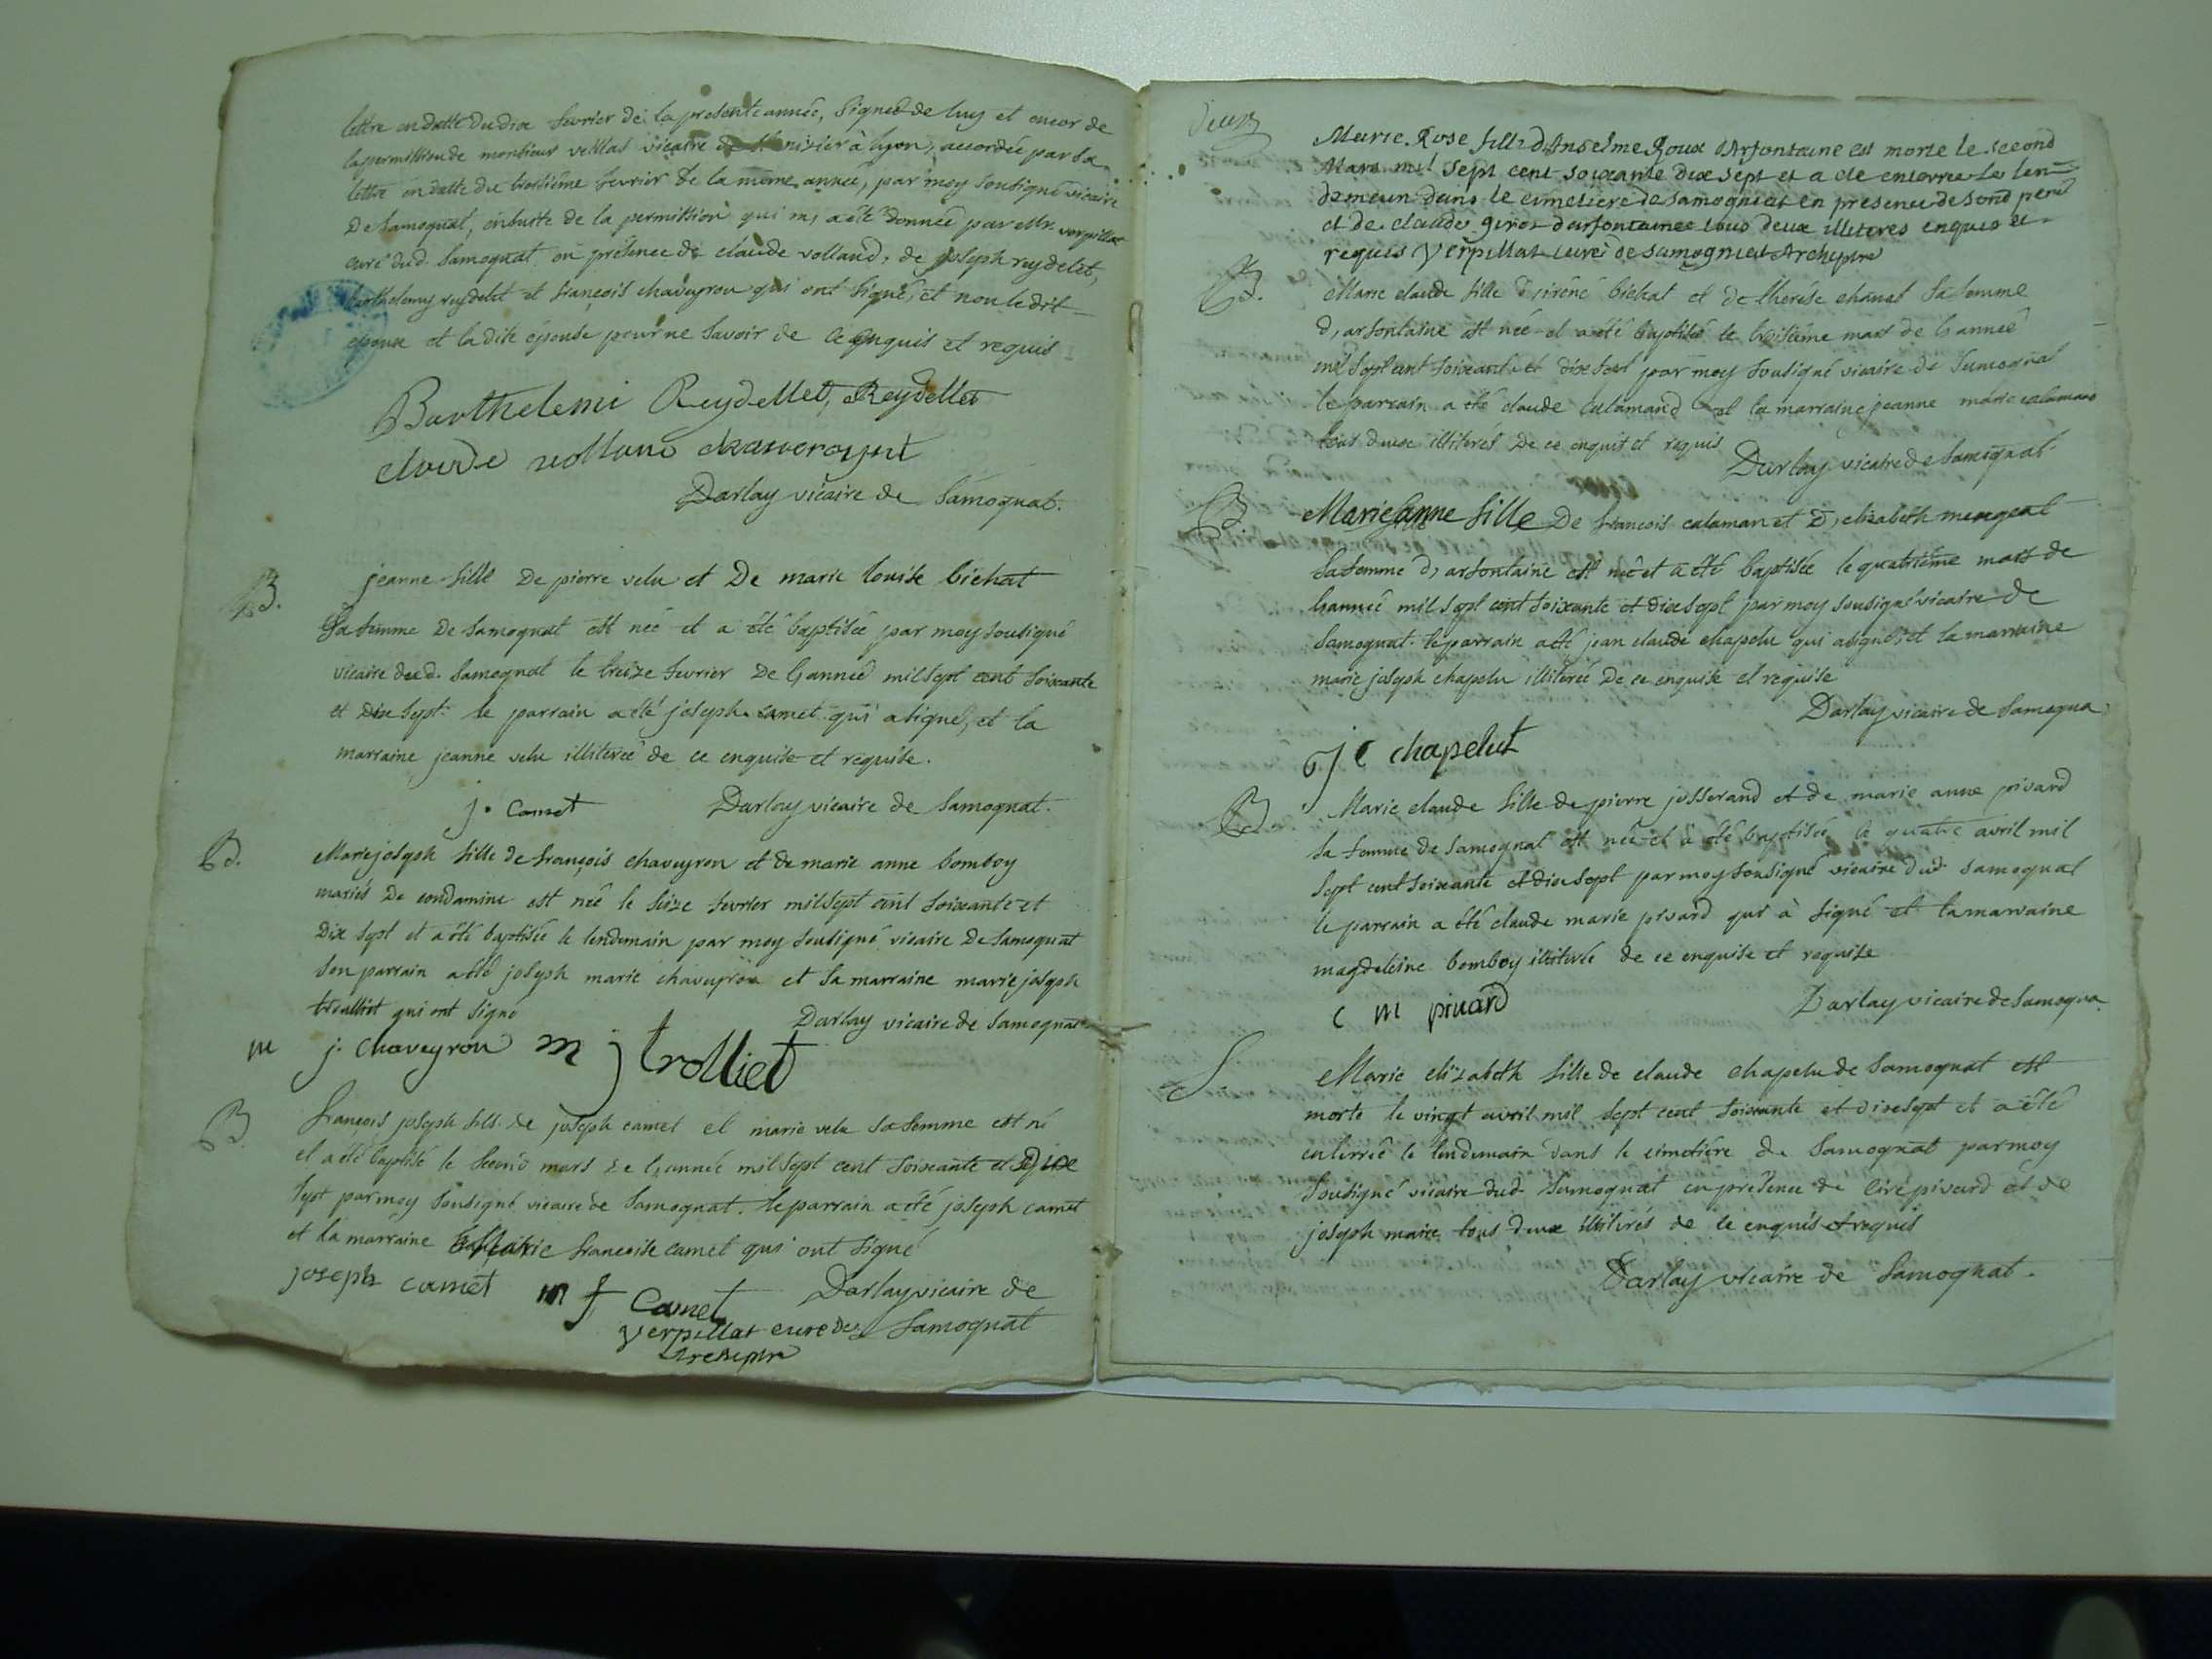 lettre en datte du dix fevrier de la presente année, signée de luy et encor de
la permission de monsieur vicaire de st nisier à lyon, accordée par sa
lettre en datte du troisième fevrier de la même année, par moy sousigné vicaire
De Samognat, ensuitte de la permission qui m'a été donnée par Mr. verpillat
curé dud. Samognat en présence de claude volland, de joseph reydelet,
barthelemy reydelet et françois chaveyron qui ont signé et non ledit
epoux et la dite épouse pour ne savoir de ce enquis et requis
Barthelemi Reydellet, Reydellet
claude volland
Darlay vicaire de Samognat.
B.
jeanne fille De pierre velu et De marie louise bichat
Sa femme De Samognat est née et a été baptisée par moy sousigné
vicaire dud. Samognat le treize fevrier De l'année mil sept cent soixante
et dix sept. le parrain a été joseph camet qui a signé, et la
marraine jeanne velu illiterée de ce enquise et requise.
j. Camet Darlay vicaire de Samognat.
B.
Marie joseph fille de françois chaveyron et de marie anne bomboy
mariés De condamine est née le seize fevrier mil sept cent soixante et
Dix sept et a été baptisée le lendemain par moy sousigné vicaire De Samognat
son parrain a été joseph marie chaveyron et sa marraine marie joseph
trolliet qui ont signé Darlay vicaire de Samognat
m j. Chaveyron m j trolliet
B.
françois joseph fils de joseph camet et marie velu sa femme est né
et a été baptisé le second mars de l'année mil sept cent soixante et dix
sept par moy sousigné vicaire de Samognat. le parrain a été joseph camet
et la marraine marie françoise camet qui ont signé
joseph camet m f Camet Darlay vicaire de
Verpillat curé de Samognat
Archiprtre
Marie Rose fille d'Anselme Roux d'Arfontaine est morte le second
Mars mil sept cent soixante dix sept et a été enterrée le len=
demain dans le cimetiere de Samogniat en presence de son pere
et de claude girod d'arfontaine tous deux illiteres enquis et
requis Verpillat curé de Samogniat Archiptre
B.
Marie claude fille d'irené bichat et de therése chanal sa femme
d'arfontaine est née et a été baptisée le troisième mars de l'année
mil sept cent soixante et dix sept par moy sousigné vicaire de Samognat
le parrain a été claude calamand et la marraine jeanne marie calamand
tous deux illiterés De ce enquis et requis Darlay vicaire de Samognat.
B.
Marie anne fille De françois calaman et D'elizabeth mengeat
sa femme d'arfontaine est née et a été baptisée le quatrième mars de
l'année mil sept cent soixante et dix sept par moy sousigné vicaire de
Samognat. le parrain a été jean claude chapelu qui a signé, et la marraine
marie joseph chapelu illiterée De ce enquise et requise
Darlay vicaire de Samogna
j c chapelut
B.
Marie claude fille de pierre josserand et de marie anne pivard
sa femme de Samognat est née et a été baptisée le quatre avril mil
sept cent soixante et dix sept par moy sousigné vicaire dud Samognat
le parrain a été claude marie pivard qui à signé et la marraine
magdeleine bomboy illiterée de ce enquise et requise
c m pivard Darlay vicaire de Samogna
S.
Marie elizabeth fille de claude chapelu de Samognat est
morte le vingt avril mil sept cent soixante et dix sept et a été
enterrée le lendemain dans le cimetiére de Samognat par moy
sousigné vicaire dud Samognat en présence de ciré pivard et de
joseph maire tous deux illiterés de ce enquis et requis
Darlay vicaire de Samognat.